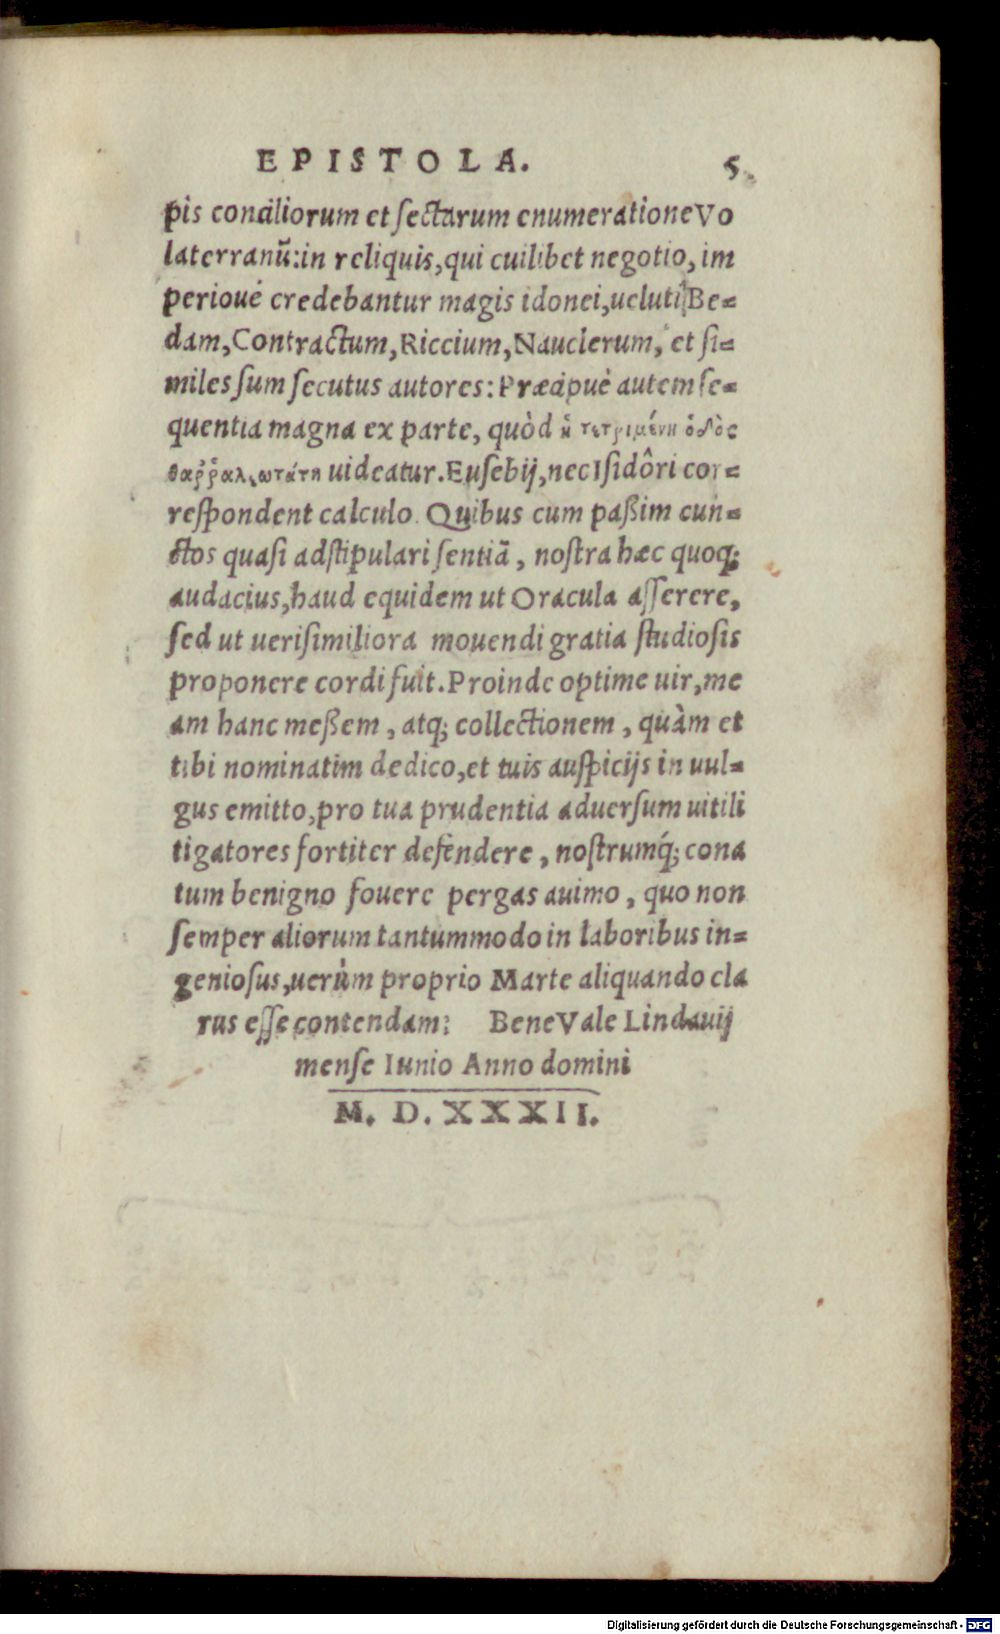 EPISTOLA. 5
pis conciliorum et ſectarum enumeratione Vo
laterranū: in reliquis, qui cuilibet negotio, im
periouè credebantur magis idonei, ueluti Be=
dam, Contractum, Riccium, Nauclerum, et ſi=
miles ſum ſecutus autores: Præcipuè autem ſe=
quentia magna ex parte, quòd ἡ τετριμένη ὁδὸς
θαῤῥαλεωτάτη uideatur. Euſebij, nec Iſidôri cor=
reſpondent calculo. Quibus cum paßim cun=
ctos quaſi adſtipulari ſentiā, noſtra hæc quoq;
audacius, haud equidem ut Oracula aſſerere,
ſed ut ueriſimiliora mouendi gratia ſtudioſis
proponere cordi fuit. Proinde optime uir, me
am hanc meßem, atq; collectionem, quàm et
tibi nominatim dedico, et tuis auſpicijs in uul=
gus emitto, pro tua prudentia aduerſum uitili
tigatores fortiter defendere, noſtrumq́; cona
tum benigno fouere pergas auimo, quo non
ſemper aliorum tantummodo in laboribus in=
genioſus, uerùm proprio Marte aliquando cla
rus eſſe contendam: Bene Vale Lindauij
menſe Iunio Anno domini
M. D. XXXII.
Digitalisierung gefördert durch die Deutsche Forschungsgemeinschaft - DFG